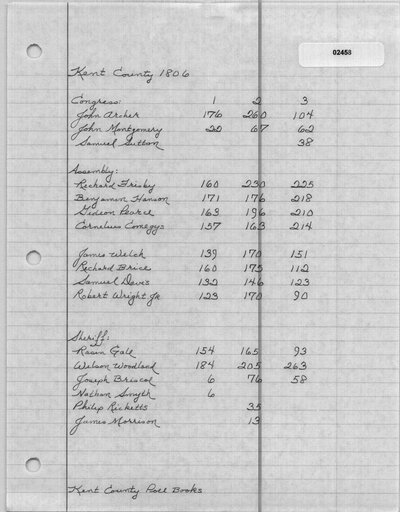 02458
Kent County 1806
Congress: 1 2 3
John Archer 176 260 104
John Montgomery 22 67 62
Samuel Sutton 38
Assembly:
Richard Frisby 160 230 225
Benjamin Hanson 171 176 218
Gideon Pearce 163 196 210
Cornelius Comegys 157 163 214
James Welch 139 170 151
Richard Brice 160 175 112
Samuel Davis 132 146 123
Robert Wright Jr 123 170 90
Sheriff:
Rasin Gale 154 165 93
Watson Woodland 184 205 263
Joseph Briscoe 6 76 58
Nathan Smyth 6
Philip Ricketts 35
James Morrison 13
Kent County Poll Books